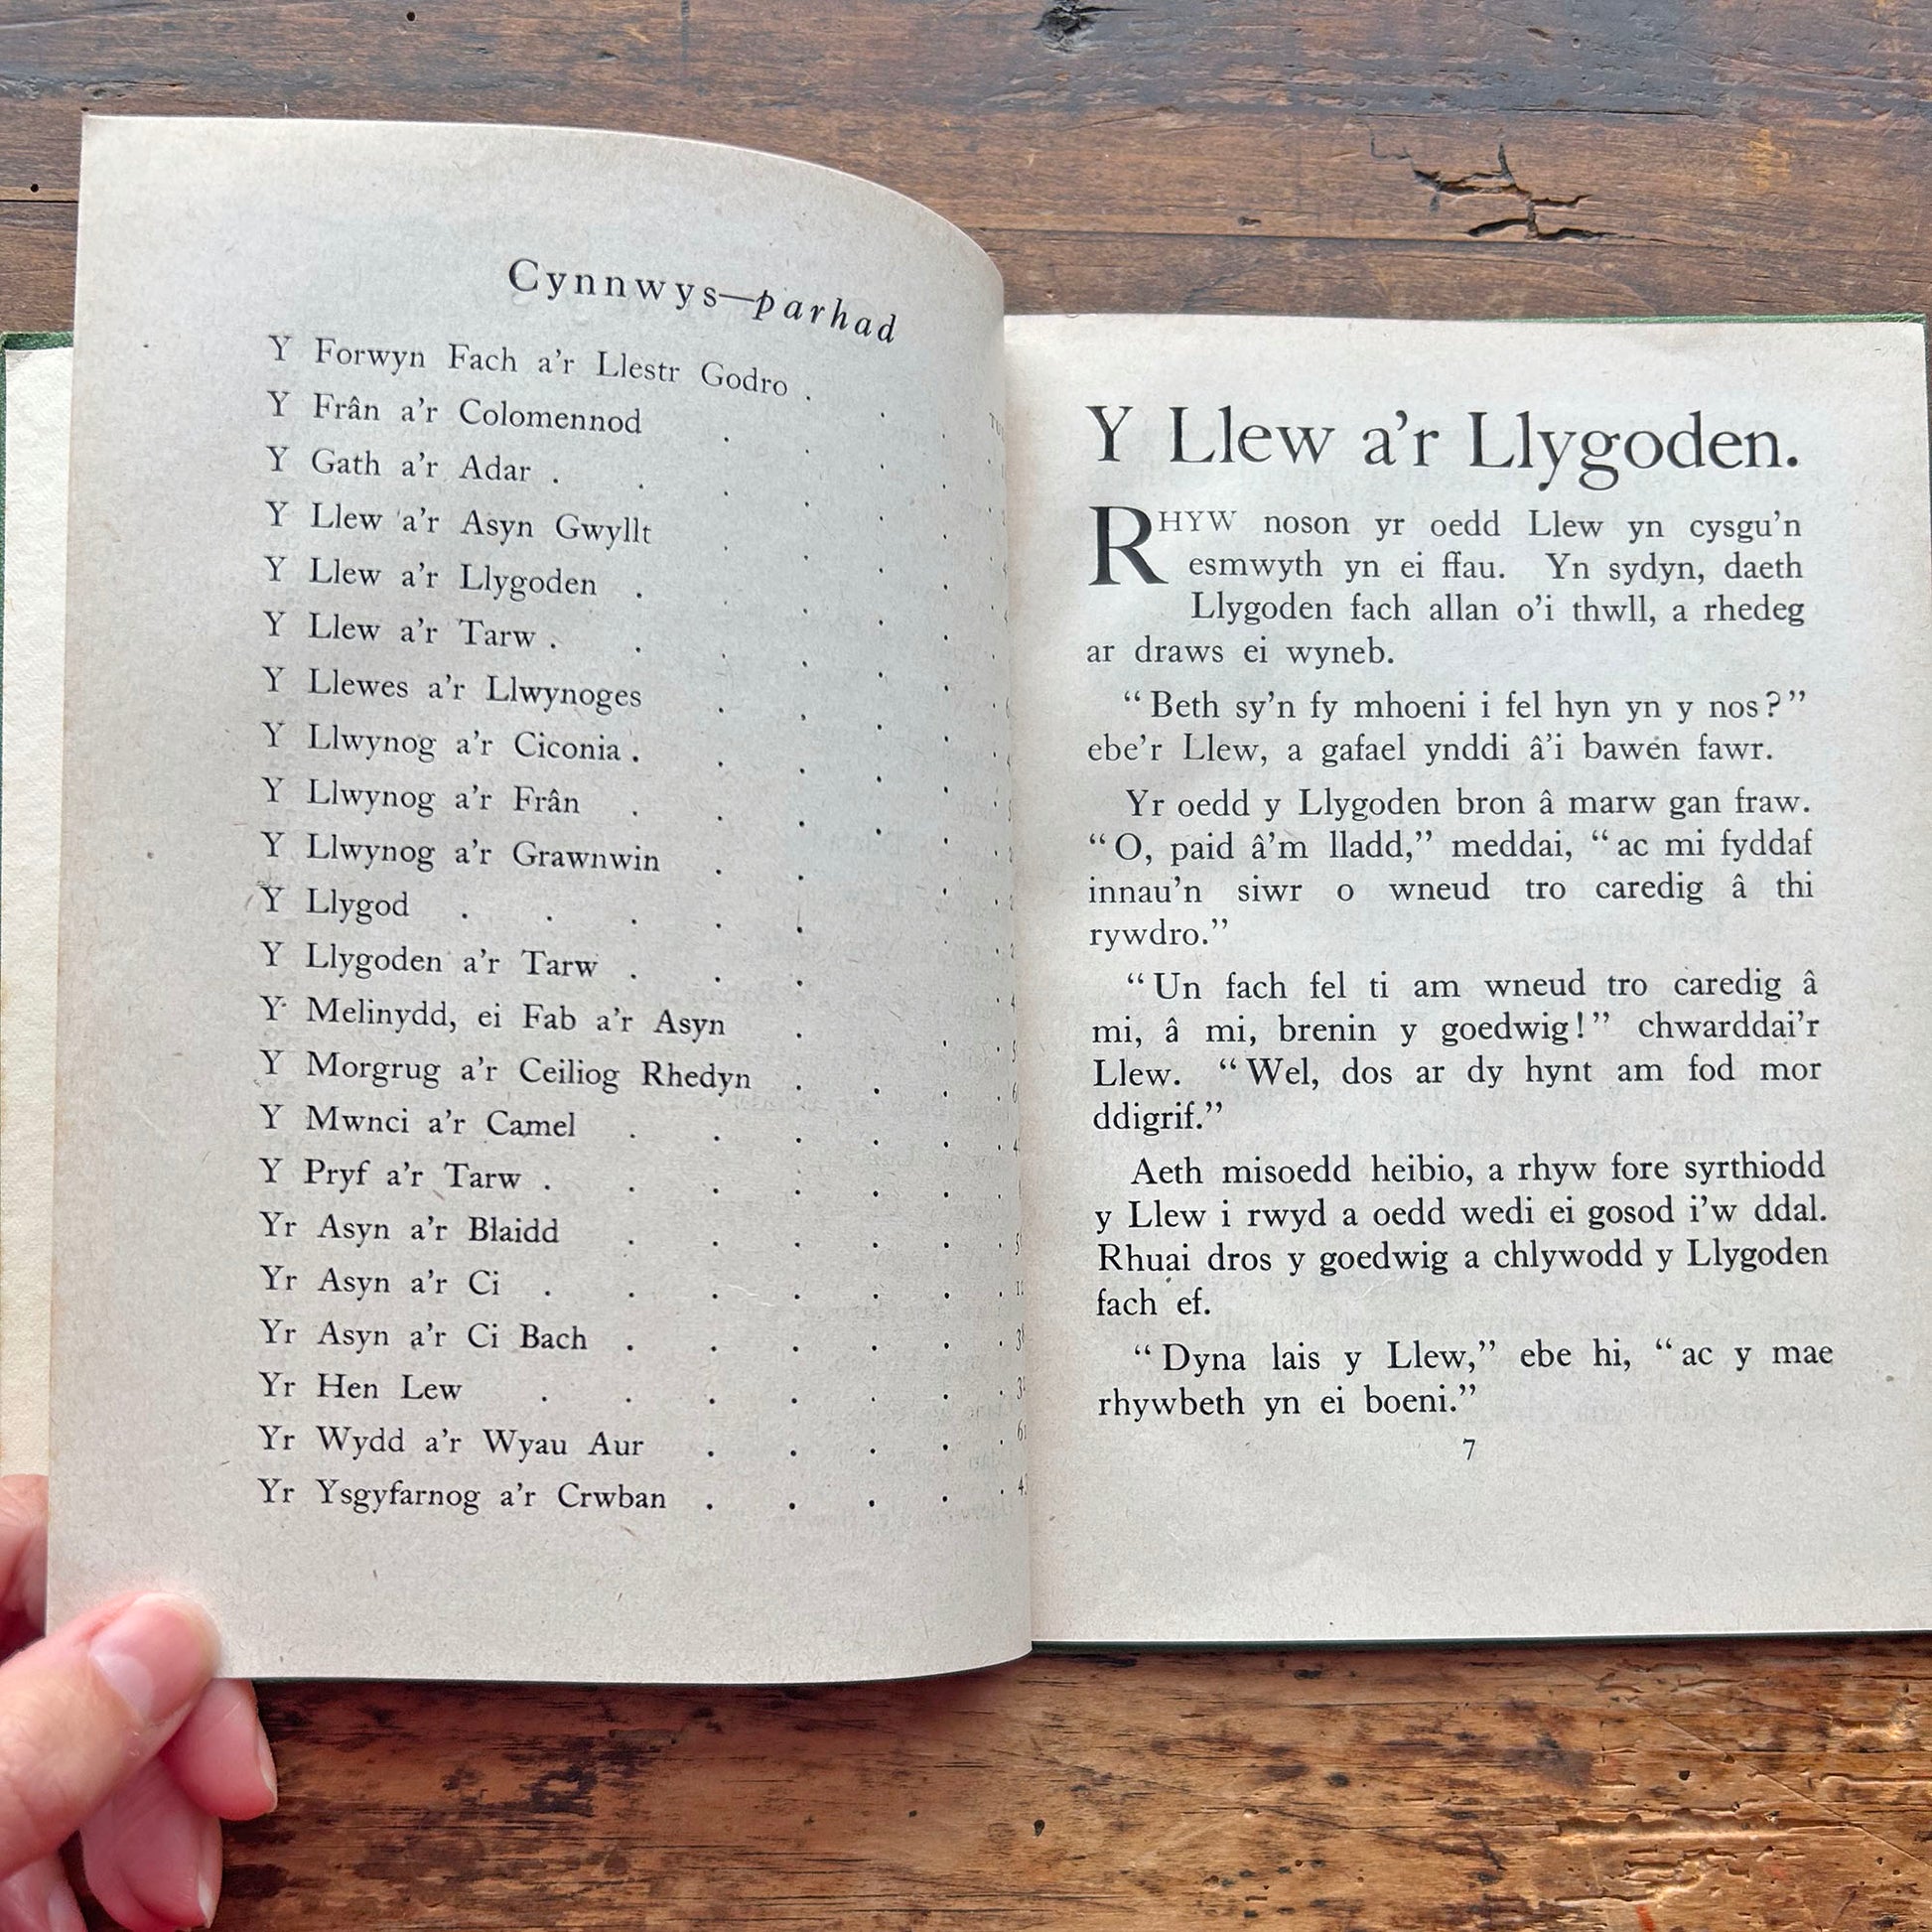 Cynnwys—parhad
Y Forwyn Fach a'r Llestr Godro .
Y Frân a'r Colomennod
Y Gath a'r Adar .
Y Llew a'r Asyn Gwyllt
Y Llew a'r Llygoden .
Y Llew a'r Tarw .
Y Llewes a'r Llwynoges
Y Llwynog a'r Ciconia .
Y Llwynog a'r Frân
Y Llwynog a'r Grawnwin
Y Llygod
Y Llygoden a'r Tarw
Y Melinydd, ei Fab a'r Asyn
Y Morgrug a'r Ceiliog Rhedyn
Y Mwnci a'r Camel
Y Pryf a'r Tarw .
Yr Asyn a'r Blaidd
Yr Asyn a'r Ci
Yr Asyn a'r Ci Bach
Yr Hen Lew
Yr Wydd a'r Wyau Aur
Yr Ysgyfarnog a'r Crwban
Y Llew a'r Llygoden.
RHYW noson yr oedd Llew yn cysgu'n
esmwyth yn ei ffau. Yn sydyn, daeth
Llygoden fach allan o'i thwll, a rhedeg
ar draws ei wyneb.
“Beth sy'n fy mhoeni i fel hyn yn y nos?”
ebe'r Llew, a gafael ynddi â'i bawen fawr.
Yr oedd y Llygoden bron â marw gan fraw.
“O, paid â'm lladd,” meddai, “ac mi fyddaf
innau'n siwr o wneud tro caredig â thi
rywdro.”
“Un fach fel ti am wneud tro caredig â
mi, â mi, brenin y goedwig!” chwarddai'r
Llew. “Wel, dos ar dy hynt am fod mor
ddigrif.”
Aeth misoedd heibio, a rhyw fore syrthiodd
y Llew i rwyd a oedd wedi ei gosod i'w ddal.
Rhuai dros y goedwig a chlywodd y Llygoden
fach ef.
“Dyna lais y Llew,” ebe hi, “ac y mae
rhywbeth yn ei boeni.”
7